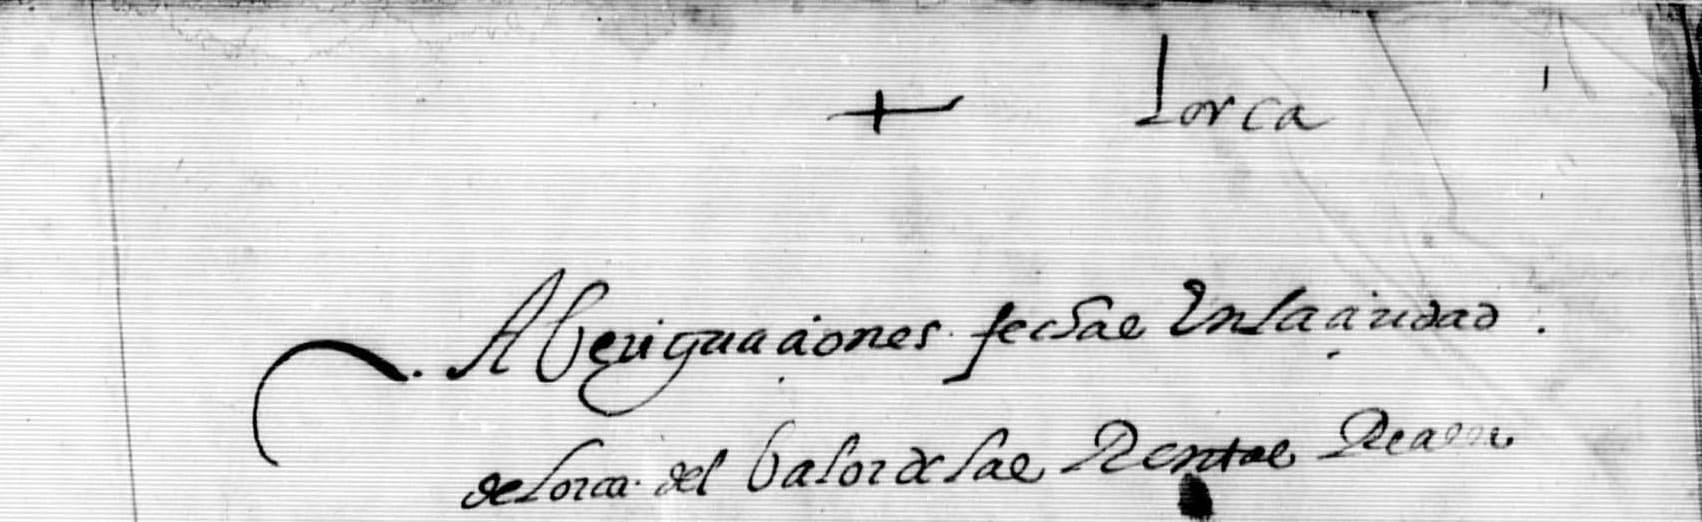 + Lorca
Aberiguaciones fechas En la ciudad .
de lorca. del balor de las Rentas Reales